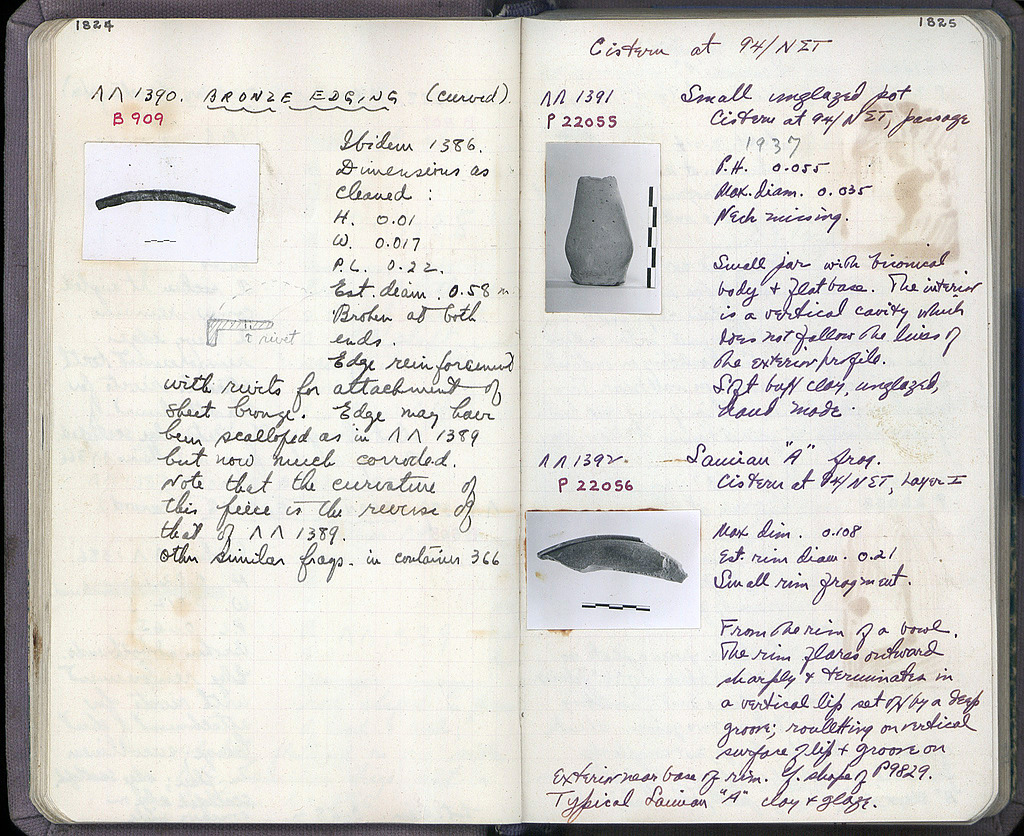 1824
ΛΛ 1390. BRONZE EDGING (curved).
B 909
Ibidem 1386.
Dimensions as
cleaned :
H. 0.01
W. 0.017
P.L. 0.22.
Est. diam. 0.58 m
Broken at both
ends.
rivet
Edge reinforcement
with rivets for attachment of
sheet bronze. Edge may have
been scalloped as in ΛΛ 1389
but now much corroded.
Note that the curvature of
this piece is the reverse of
that of ΛΛ 1389.
Other similar frags. in container 366
1825
Cistern at 94/ΝΣΤ
ΛΛ 1391 Small unglazed pot
P 22055 Cistern at 94/ΝΣΤ, passage
1937
P.H. 0.055
Max. diam. 0.035
Neck missing.
Small jar with biconical
body + flat base. The interior
is a vertical cavity which
does not follow the lines of
the exterior profile.
Soft buff clay, unglazed,
hand made.
ΛΛ 1392 Samian "A" frag.
P 22056 Cistern at 94/ΝΣΤ, Layer I
Max dim. 0.108
Est. rim diam. 0.21
Small rim fragment.
From the rim of a bowl.
The rim flares outward
sharply + terminates in
a vertical lip set off by a deep
groove; rouletting on vertical
surface of lip + groove on
exterior near base of rim. Cf. shape of P9829.
Typical Samian "A" clay + glaze.